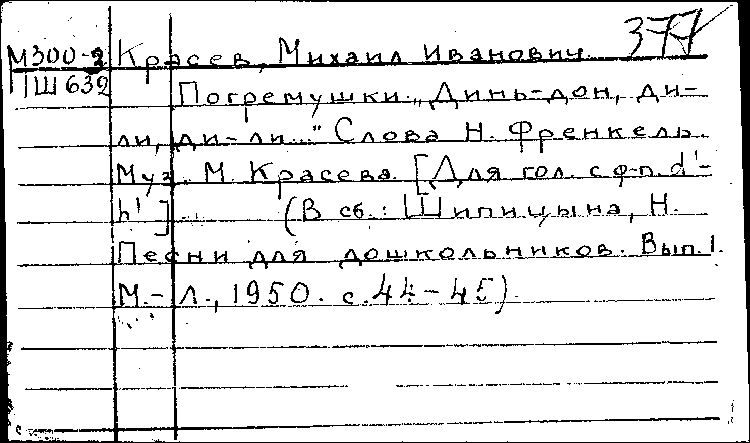 377
М300-2 Красев, Михаил Иванович.
Ш632 Погремушки. „Динь-дон, ди-
ли, ди-ли..." Слова Н. Френкель.
Муз. М. Красева. [Для гол. с ф-п. d'-
h'] (В сб.: Шипицына, Н.
Песни для дошкольников. Вып. 1.
М.-Л., 1950. с. 44-45).